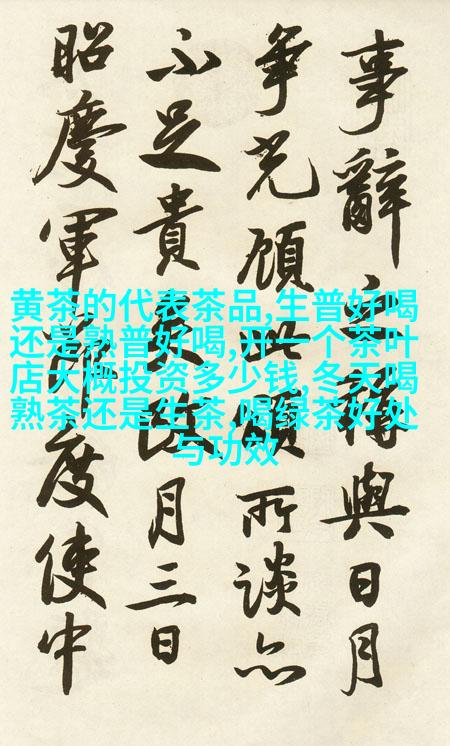 事辭與日月
爭光顧所談亦
不足貴月三日
昭慶軍節度使中
黄茶的代表茶品,生普好喝
还是熟普好喝,开一个茶叶
店大概投资多少钱,冬天喝
熟茶还是生茶,喝绿茶好处
与功效